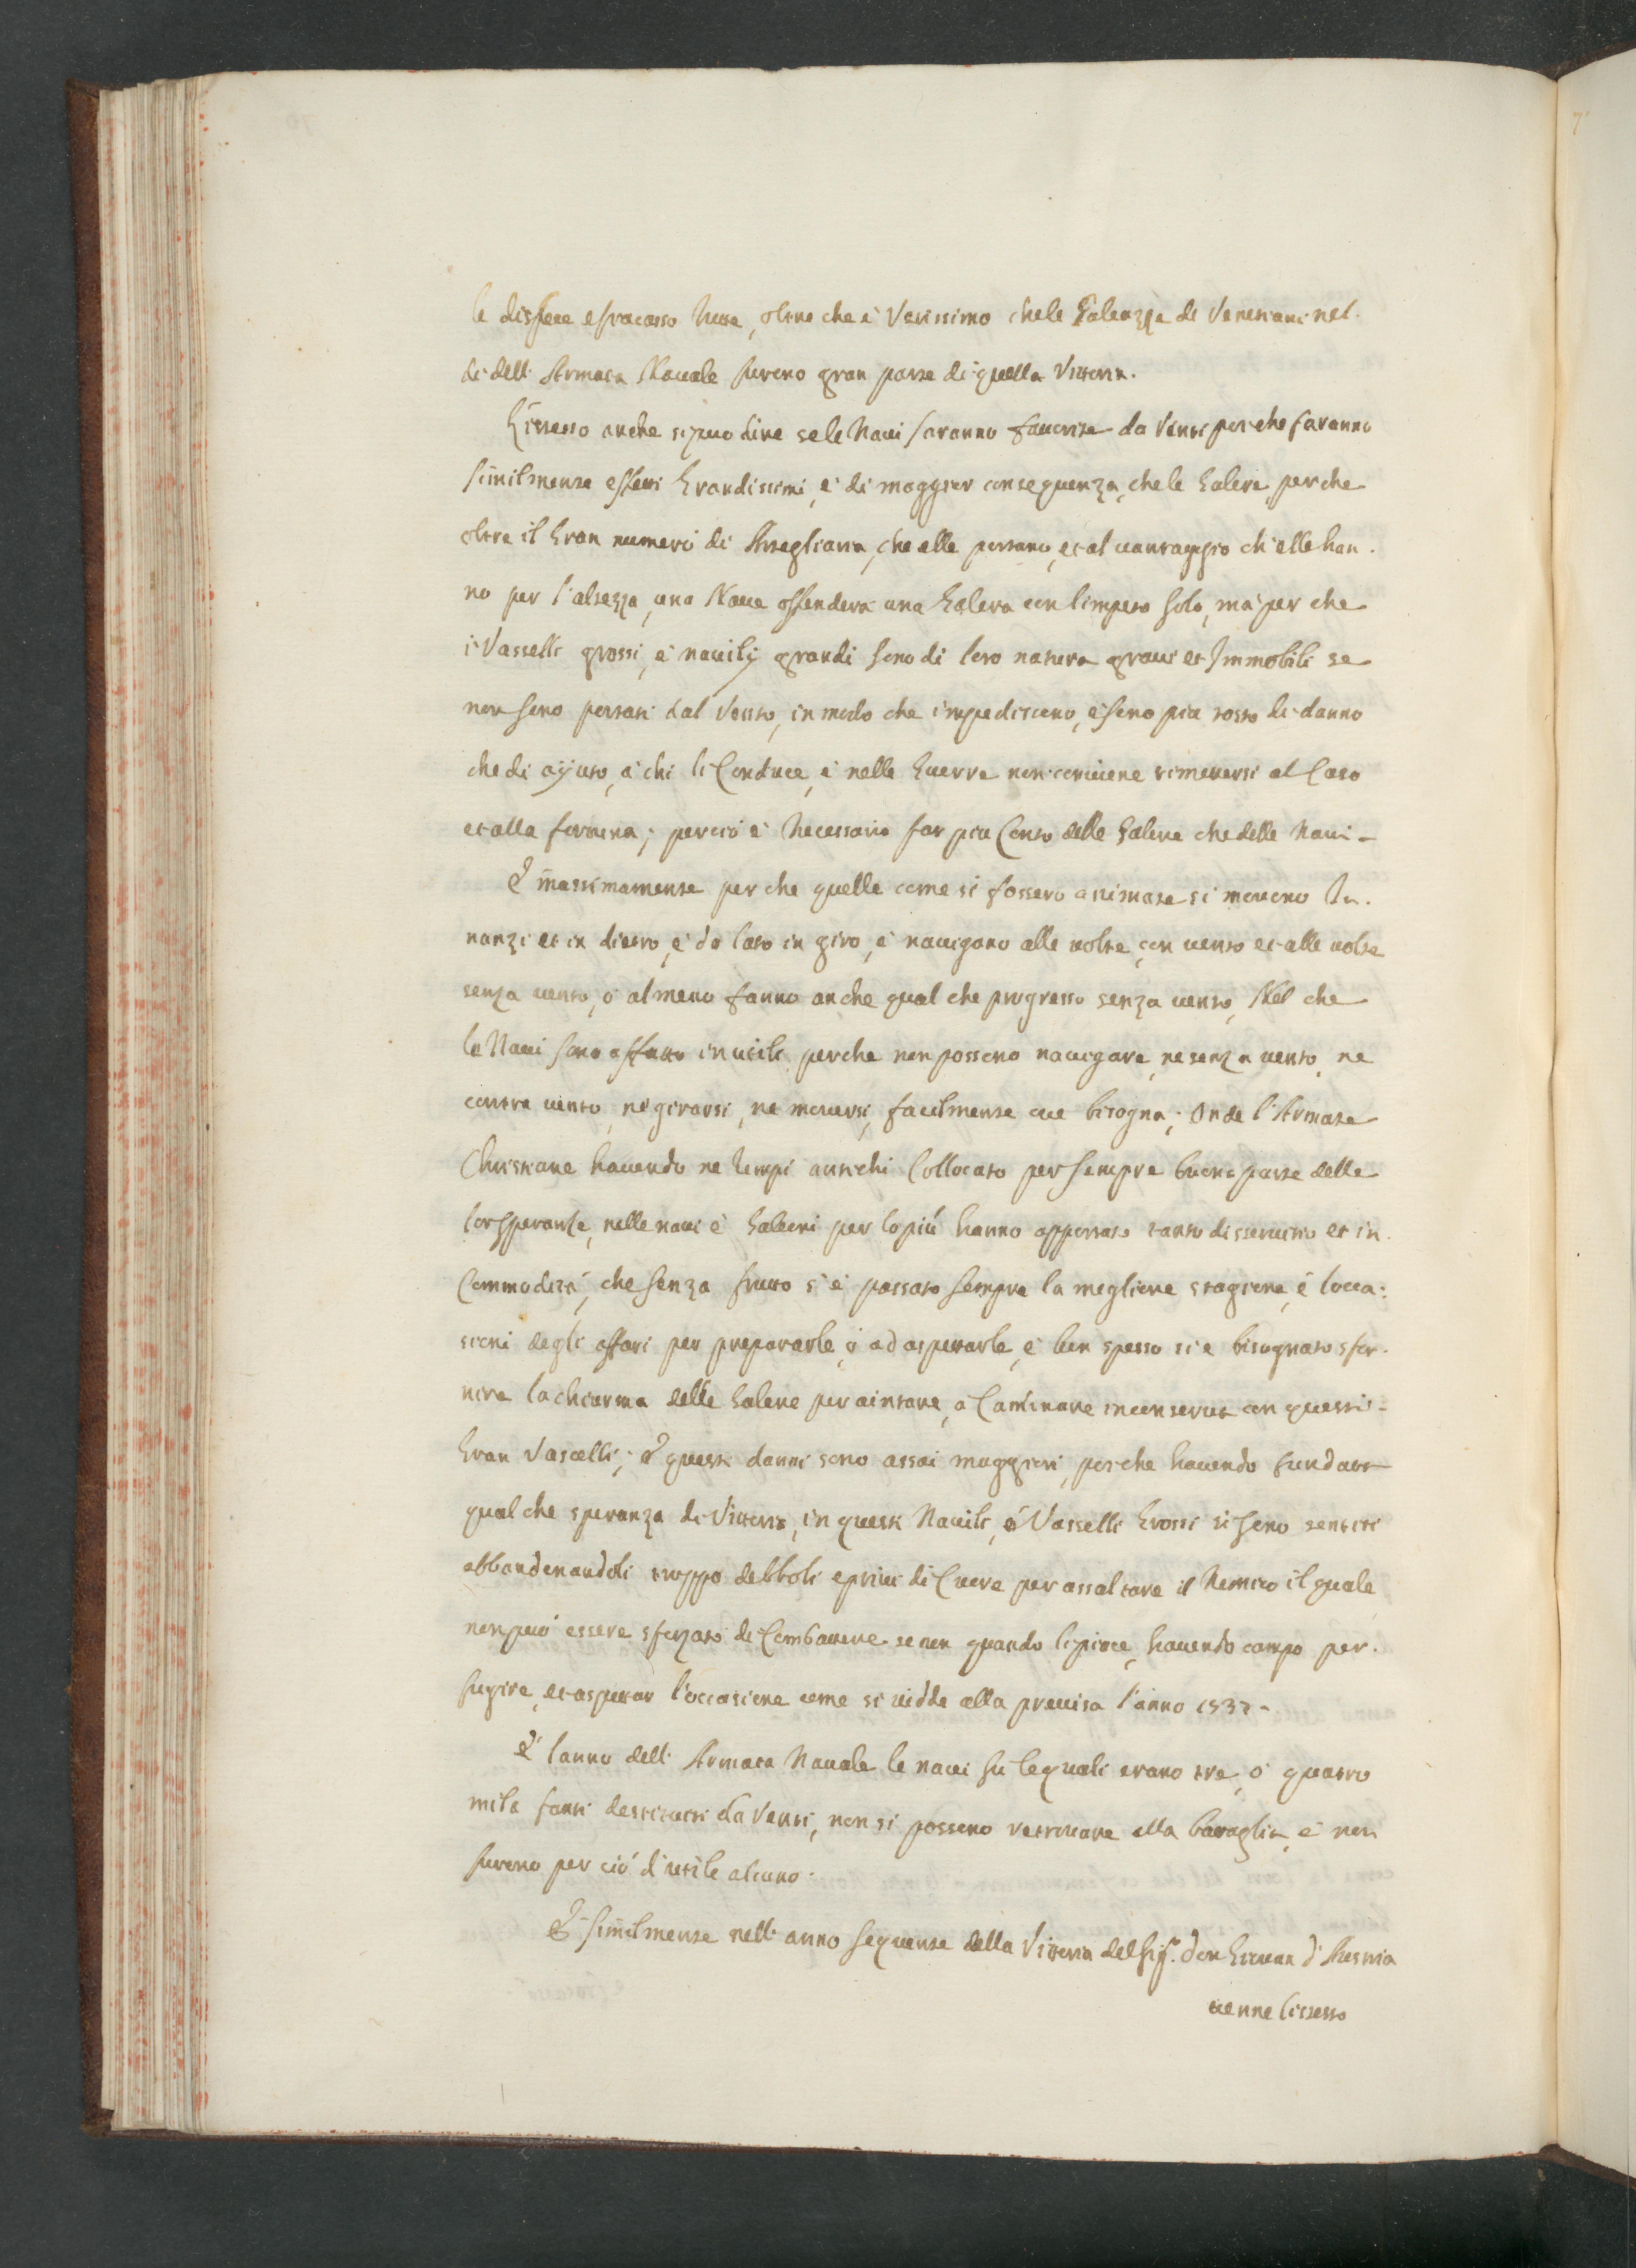 le disfece e fracasso tutte, oltre che è Verissimo che le Galeazze de Venetiani nel
dì dell' Armata Navale furono gran parte di quella Vittoria.
L'istesso anche si puo dire se le Navi saranno favorite da Venti perche faranno
similmente effetti Grandissimi, è di maggior conseguenza, che le Galere, perche
oltre il Gran numero di Artegliaria, che elle portano, et al vantaggio ch'elle han.
no per l'altezza, una Nave offenderà una Galera con l'impeto solo, mà per che
i Vasselli grossi, è navilij grandi sono di loro natura gravi et Immobili se
non sono portati dal Vento, in modo che impediscono, è sono piu tosto di danno
che di ajuto, à chi li Conduce, è nelle Guerre non conviene rimetersi al Caso
et alla fortuna; percio è Necessario far piu Conto delle Galere che delle Navi-
E massimamente per che quelle come si fossero animate si movono In.
nanzi et in dietro, è da lato in giro, è navigano alle volte, con vento et alle volte
senza vento, ò almeno fanno anche qual che progresso senza vento, Nel che
le Navi sono affatto inutili perche non possono navigare, ne senza vento, ne
contra vento, ne girarsi, ne moversi, facilmente ove bisogna; Onde l'Armate
Christiane havendo ne tempi antichi Collocato per sempre buona parte delle
lor speranze, nelle navi è Galeoni per lo più hanno apportato tanto disservitio et in
Commodità, che senza frutto s'è passato sempre la megliore stagione, è l'occa:
sioni degli affari per prepararle, ò ad aspetarle, è ben spesso si è bisognato sfor.
nire la chiurma delle Galere per aiutare, a Caminare in conserva con questi-
Gran Vascelli; E questi danni sono assai maggiori, perche havendo fundato
qual che speranza di Vittoria, in questi Navili, è Vasselli Grossi si sono sentiti
abbandonandoli troppo debboli e privi di Cuore per assaltare il Nemico il quale
non può essere sforzato di Combattere se non quando li piace, havendo campo per.
fugire, et aspetar l'occasione come si vidde alla prevesa l'anno 1537-
E l'anno dell' Armata Navale le navi su le quali erano tre, ò quattro
mila fanti destituiti da Venti, non si possono retrovare alla bataglia, è non
furono per ciò d'utile alcuno.
E similmente nell' anno sequente della Vittoria del Sig.r don Giovan d'Austria
venne l'istesso